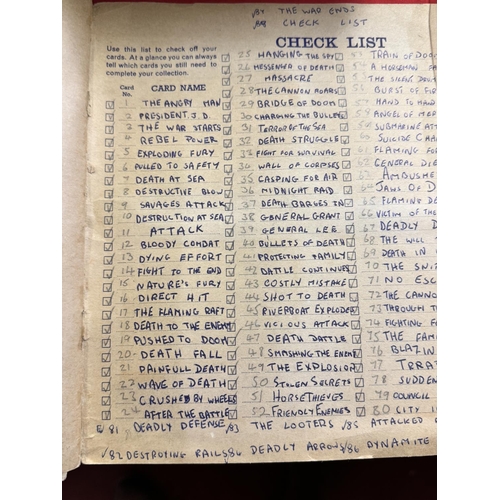 88 THE WAR ENDS
CHECK LIST
CHECK LIST
Use this list to check off your
cards. At a glance you can always
tell which cards you still need to
complete your collection.
Card
No.
CARD NAME
1 THE ANGRY MAN
2 PRESIDENT J.D.
3 THE WAR STARTS
4 REBEL POWER
5 EXPLODING FURY
6 PULLED TO SAFETY
7 DEATH AT SEA
8 DESTRUCTIVE BLOW
9 SAVAGES ATTACK
10 DESTRUCTION AT SEA
11 ATTACK
12 BLOODY COMBAT
13 DYING EFFORT
14 FIGHT TO THE END
15 NATURE'S FURY
16 DIRECT HIT
17 THE FLAMING RAFT
18 DEATH TO THE ENEMY
19 PUSHED TO DOOM
20 DEATH FALL
21 PAINFULL DEATH
22 WAVE OF DEATH
23 CRUSHED BY WHEELS
24 AFTER THE BATTLE
25 HANGING THE SPY
26 MESSENGER OF DEATH
27 MASSACRE
28 THE CANNON ROARS
29 BRIDGE OF DOOM
30 CHARGING THE BULLETS
31 TERROR OF THE SEA
32 DEATH STRUGGLE
33 FIGHT FOR SURVIVAL
34 WALL OF CORPSES
35 GASPING FOR AIR
36 MIDNIGHT RAID
37 DEATH BARGES IN
38 GENERAL GRANT
39 GENERAL LEE
40 BULLETS OF DEATH
41 PROTECTING FAMILY
42 BATTLE CONTINUES
43 COSTLY MISTAKE
44 SHOT TO DEATH
45 RIVERBOAT EXPLODES
46 VICIOUS ATTACK
47 DEATH BATTLE
48 SMASHING THE ENEMY
49 THE EXPLOSION
50 STOLEN SECRETS
51 HORSE THIEVES
52 FRIENDLY ENEMIES
53 TRAIN OF DOOM
54 A HORSEMAN
55 THE SILENT
56 BURST OF FIRE
57 HAND TO HAND
58 ANGEL OF MER
59 SUBMARINE ATTA
60 SUICIDE CHA
61 FLAMING FO
62 GENERAL DIE
63 AMBUSHE
64 JAWS OF D
65 FLAMING DE
66 VICTIM OF THE
67 DEADLY D
68 THE WILL T
69 DEATH IN
70 THE SNIP
71 NO ESC
72 THE CANNO
73 THROUGH T
74 FIGHTING F
75 THE FAM
76 BLAZIN
77 TRRA
78 SUDDEN
79 COUNCIL
80 CITY I
81 DEADLY DEFENSE /83 THE LOOTERS /85 ATTACKED
/82 DESTROYING RAILS /84 DEADLY ARROWS /86 DYNAMITE